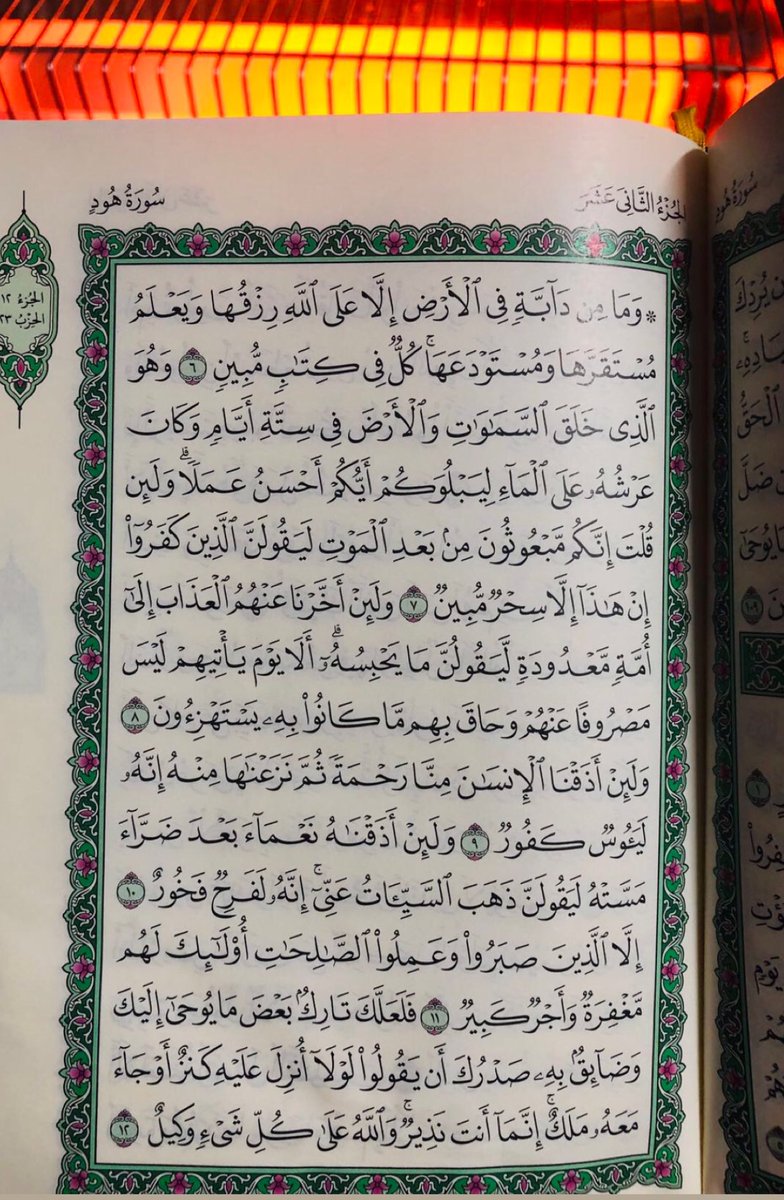 سُورَةُ هُودٍ
الجُزْءُ الثَّانِي عَشَرَ
سُورَةُ هُودٍ
الجُزْءُ ١٢
الحِزْبُ ٢٣
۞ وَمَا مِن دَآبَّةٖ فِي ٱلۡأَرۡضِ إِلَّا عَلَى ٱللَّهِ رِزۡقُهَا وَيَعۡلَمُ
مُسۡتَقَرَّهَا وَمُسۡتَوۡدَعَهَاۚ كُلّٞ فِي كِتَٰبٖ مُّبِينٖ ٦ وَهُوَ
ٱلَّذِي خَلَقَ ٱلسَّمَٰوَٰتِ وَٱلۡأَرۡضَ فِي سِتَّةِ أَيَّامٖ وَكَانَ
عَرۡشُهُۥ عَلَى ٱلۡمَآءِ لِيَبۡلُوَكُمۡ أَيُّكُمۡ أَحۡسَنُ عَمَلٗاۗ وَلَئِن
قُلۡتَ إِنَّكُم مَّبۡعُوثُونَ مِنۢ بَعۡدِ ٱلۡمَوۡتِ لَيَقُولَنَّ ٱلَّذِينَ كَفَرُوٓاْ
إِنۡ هَٰذَآ إِلَّا سِحۡرٞ مُّبِينٞ ٧ وَلَئِنۡ أَخَّرۡنَا عَنۡهُمُ ٱلۡعَذَابَ إِلَىٰٓ
أُمَّةٖ مَّعۡدُودَةٖ لَّيَقُولُنَّ مَا يَحۡبِسُهُۥٓۗ أَلَا يَوۡمَ يَأۡتِيهِمۡ لَيۡسَ
مَصۡرُوفًا عَنۡهُمۡ وَحَاقَ بِهِم مَّا كَانُواْ بِهِۦ يَسۡتَهۡزِءُونَ ٨
وَلَئِنۡ أَذَقۡنَا ٱلۡإِنسَٰنَ مِنَّا رَحۡمَةٗ ثُمَّ نَزَعۡنَٰهَا مِنۡهُ إِنَّهُۥ
لَيَـُٔوسٞ كَفُورٞ ٩ وَلَئِنۡ أَذَقۡنَٰهُ نَعۡمَآءَ بَعۡدَ ضَرَّآءَ
مَسَّتۡهُ لَيَقُولَنَّ ذَهَبَ ٱلسَّيِّـَٔاتُ عَنِّيٓۚ إِنَّهُۥ لَفَرِحٞ فَخُورٌ ١٠
إِلَّا ٱلَّذِينَ صَبَرُواْ وَعَمِلُواْ ٱلصَّٰلِحَٰتِ أُوْلَٰٓئِكَ لَهُم
مَّغۡفِرَةٞ وَأَجۡرٞ كَبِيرٞ ١١ فَلَعَلَّكَ تَارِكُۢ بَعۡضَ مَا يُوحَىٰٓ إِلَيۡكَ
وَضَآئِقُۢ بِهِۦ صَدۡرُكَ أَن يَقُولُواْ لَوۡلَآ أُنزِلَ عَلَيۡهِ كَنزٌ أَوۡ جَآءَ
مَعَهُۥ مَلَكٌۚ إِنَّمَآ أَنتَ نَذِيرٞۚ وَٱللَّهُ عَلَىٰ كُلِّ شَيۡءٖ وَكِيلٌ ١٢